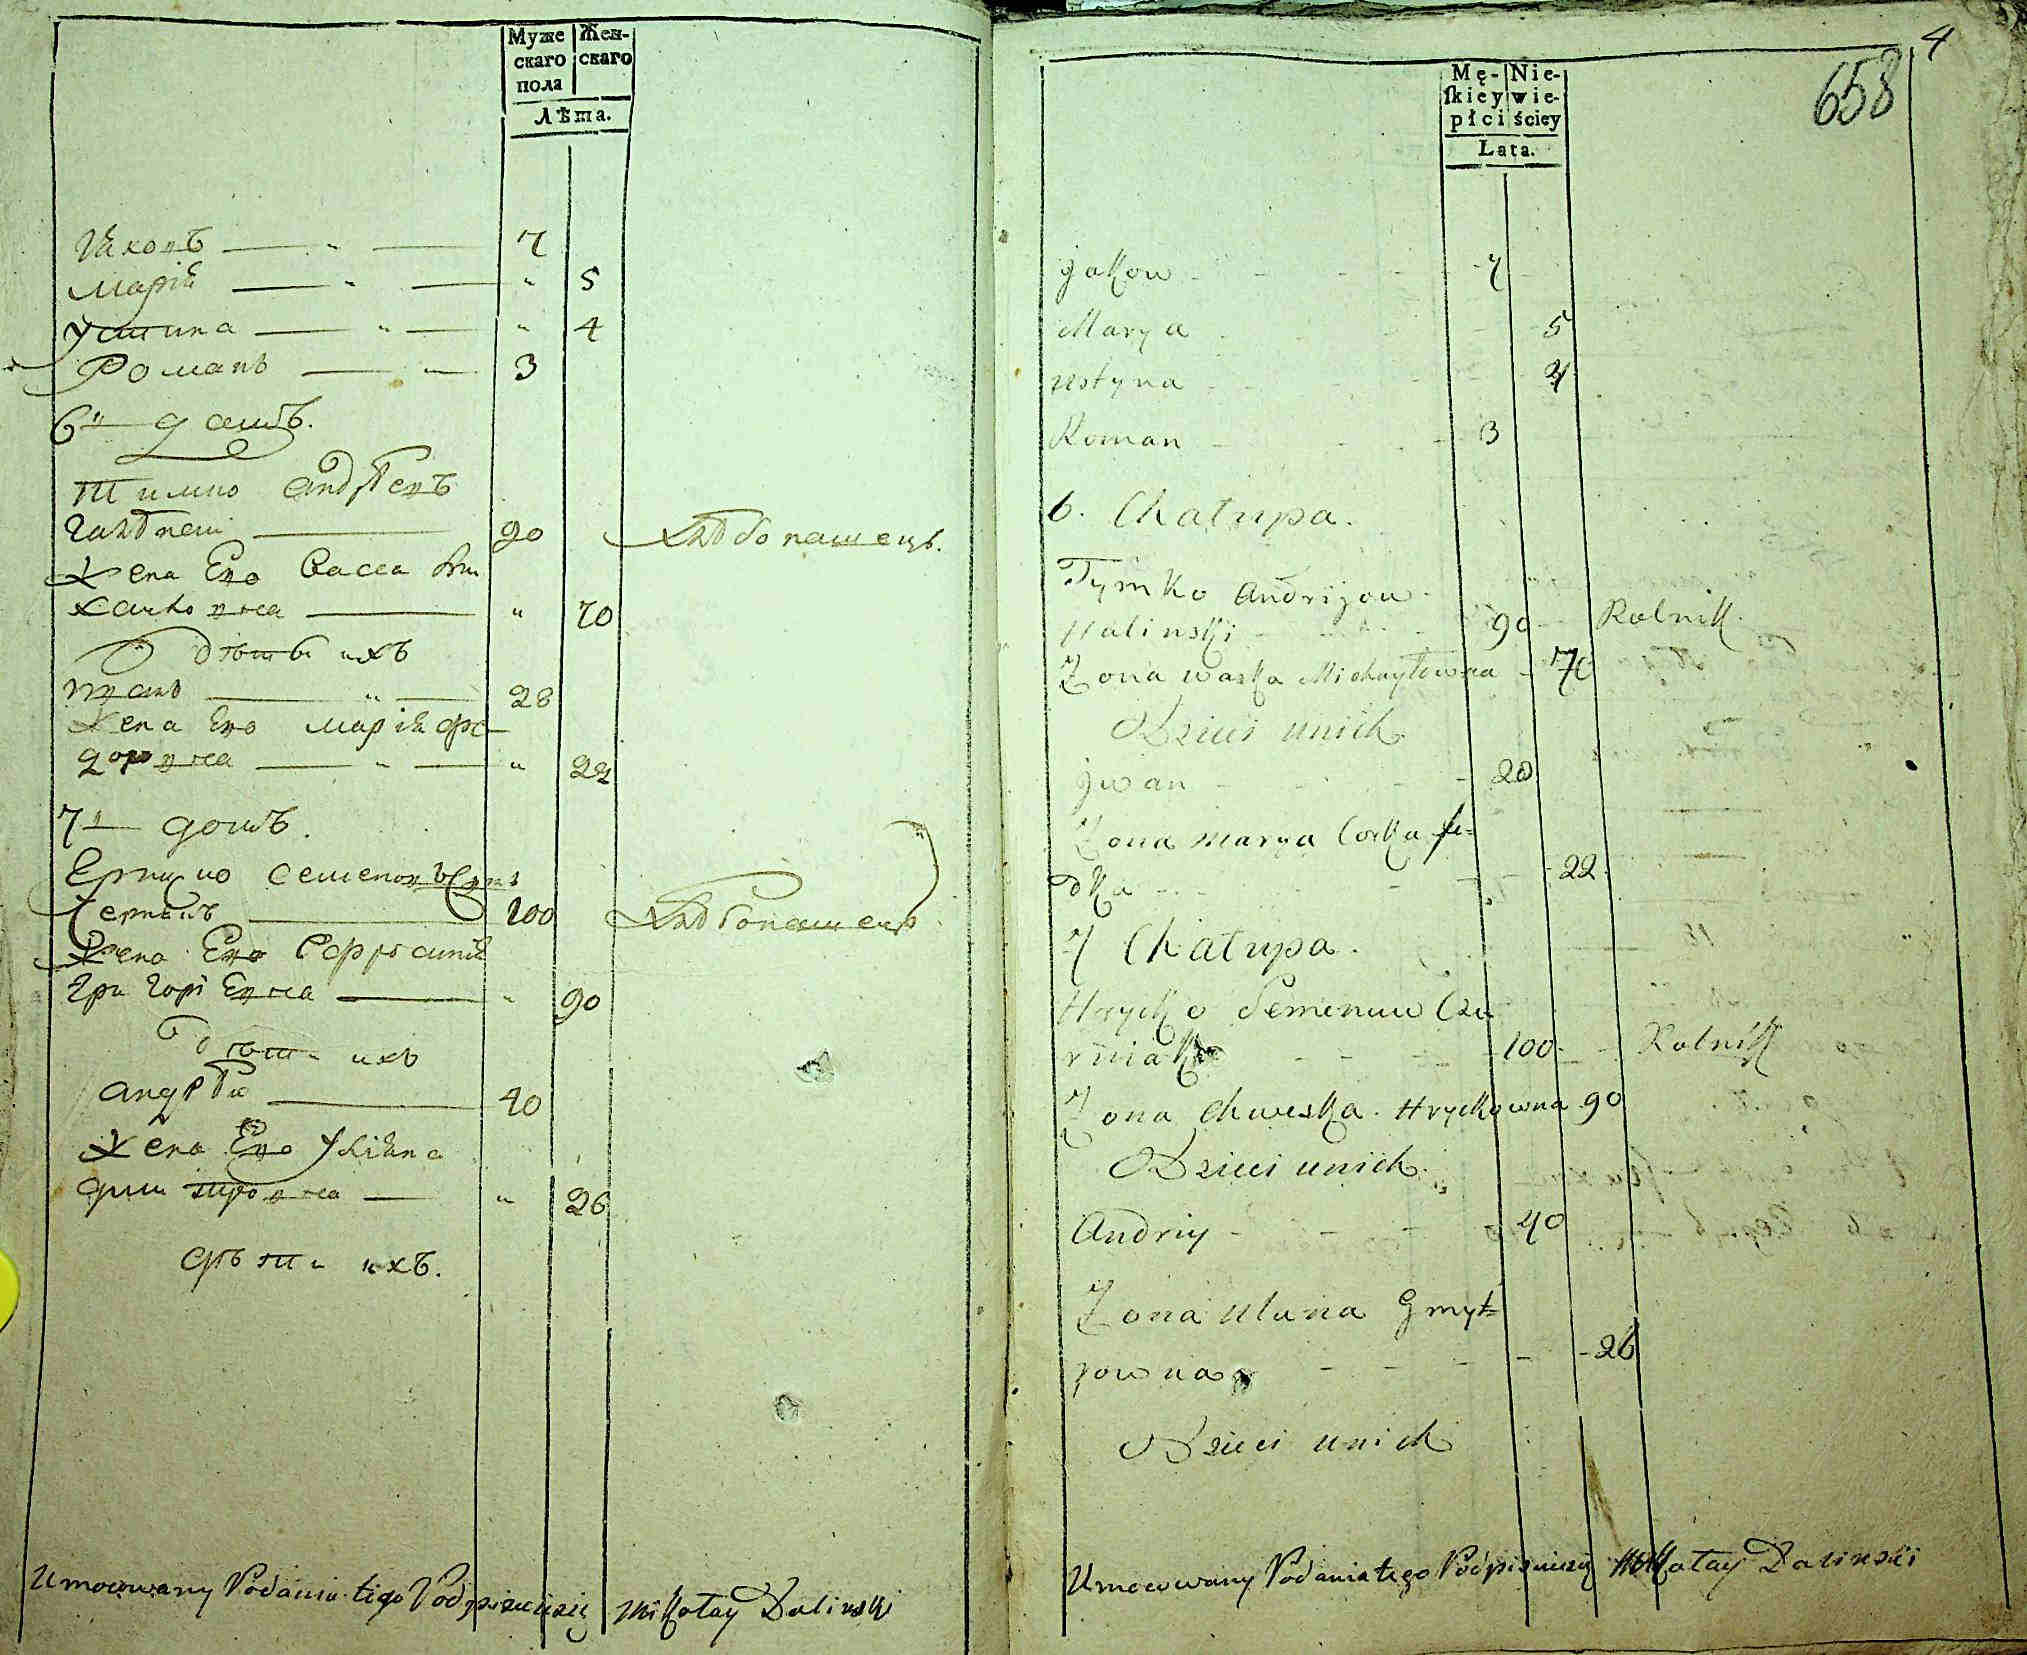 Муже
скаго
пола
Жен-
скаго
Лѣта.
Яковъ 7
Марія " 5
Устина " 4
Романъ 3
6й домъ.
Тимко Андрѣевъ
90 Хлѣбопашецъ.
Жена Его Васса Ми
хайловна " 70
Дѣти ихъ
Иванъ 28
Жена Его Марія Фе-
доровна " 22
7й домъ.
Семеновъ Сынъ
100 Хлѣбопашецъ
Жена Его
Григорiевна " 90
Дѣти ихъ
Андрѣй 40
Жена Его Улiяна
Дми тровна " 26
Дѣти ихъ.
Umocowany Podania tego Podpisuię Mikołay Dalinski
4
658
Mę-
skiey
płci
Nie-
wie-
ściey
Lata.
Jakow 7
Marya 5
Ustyna 4
Roman 3
6. Chałupa.
Tymko Andrijow
Halinski 90 Rolnik.
Zona Waska Michayłowna 70
Dzieci unich
Jwan 28
Zona Marya Corka Fe-
dka 22
7 Chałupa.
Hrycko Semenuw Cze
rniak 100 Rolnik
Zona Chweska Hryckowna 90
Dzieci unich
Andriy 40
Zona Uluna Dmyt-
rowna 26
Dzieci unich
Umocowany Podania tego Podpisuię Mikołay Dalinski